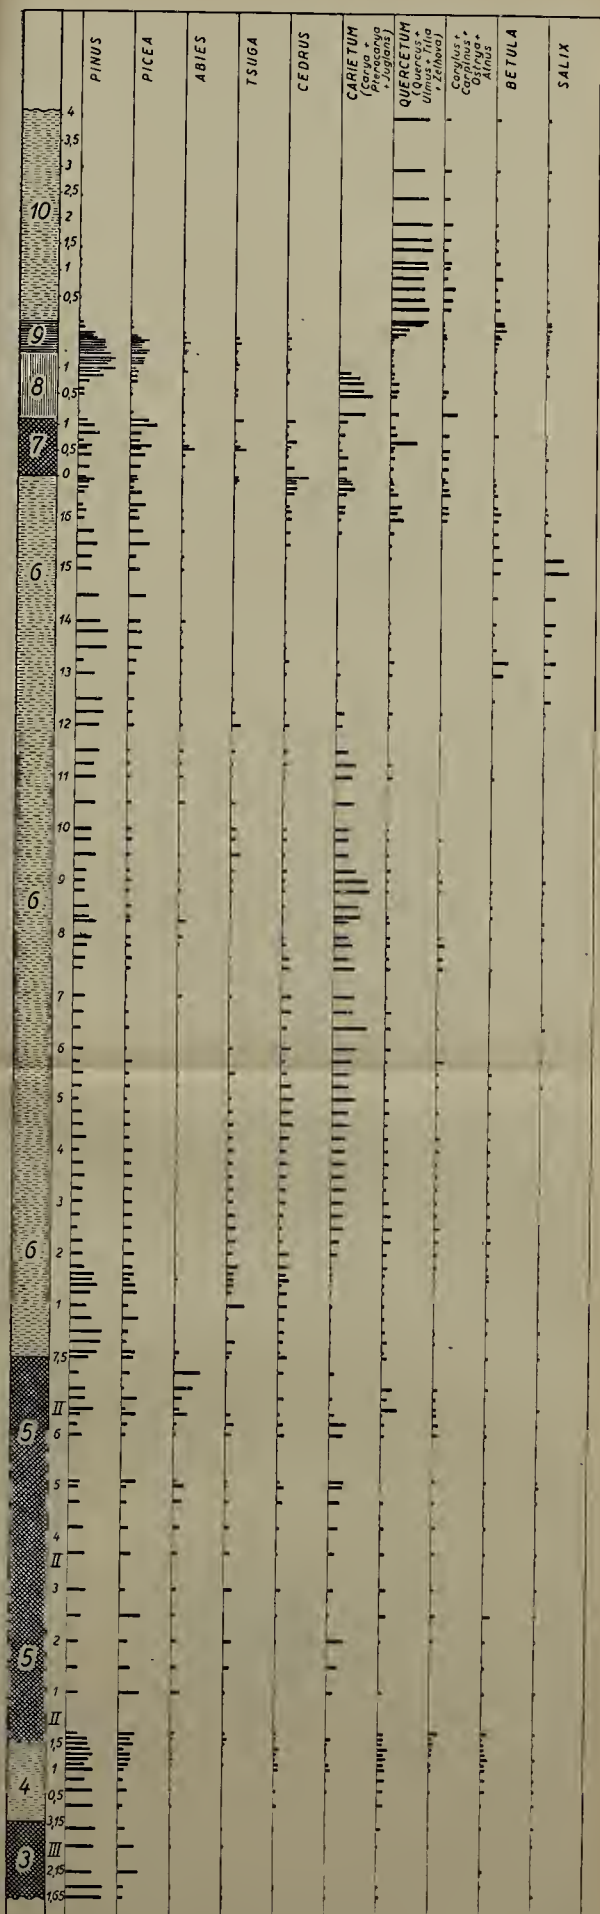 PINUS
PICEA
ABIES
TSUGA
CEDRUS
CARIETUM
(Carya +
Pterocarya
+ Juglans)
QUERCETUM
(Quercus +
Ulmus + Tilia
+ Zelkova)
Corylus +
Carpinus +
Ostrya +
Alnus
BETULA
SALIX
4
3,5
3
2,5
10
2
1,5
1
0,5
9
1
8
0,5
1
7
0,5
0
16
6
15
14
13
12
11
10
9
6
8
7
6
5
4
3
6
2
1
7,5
II
5
6
5
4
II
3
2
5
1
II
1,5
1
4
0,5
3,15
III
3
2,15
1,65